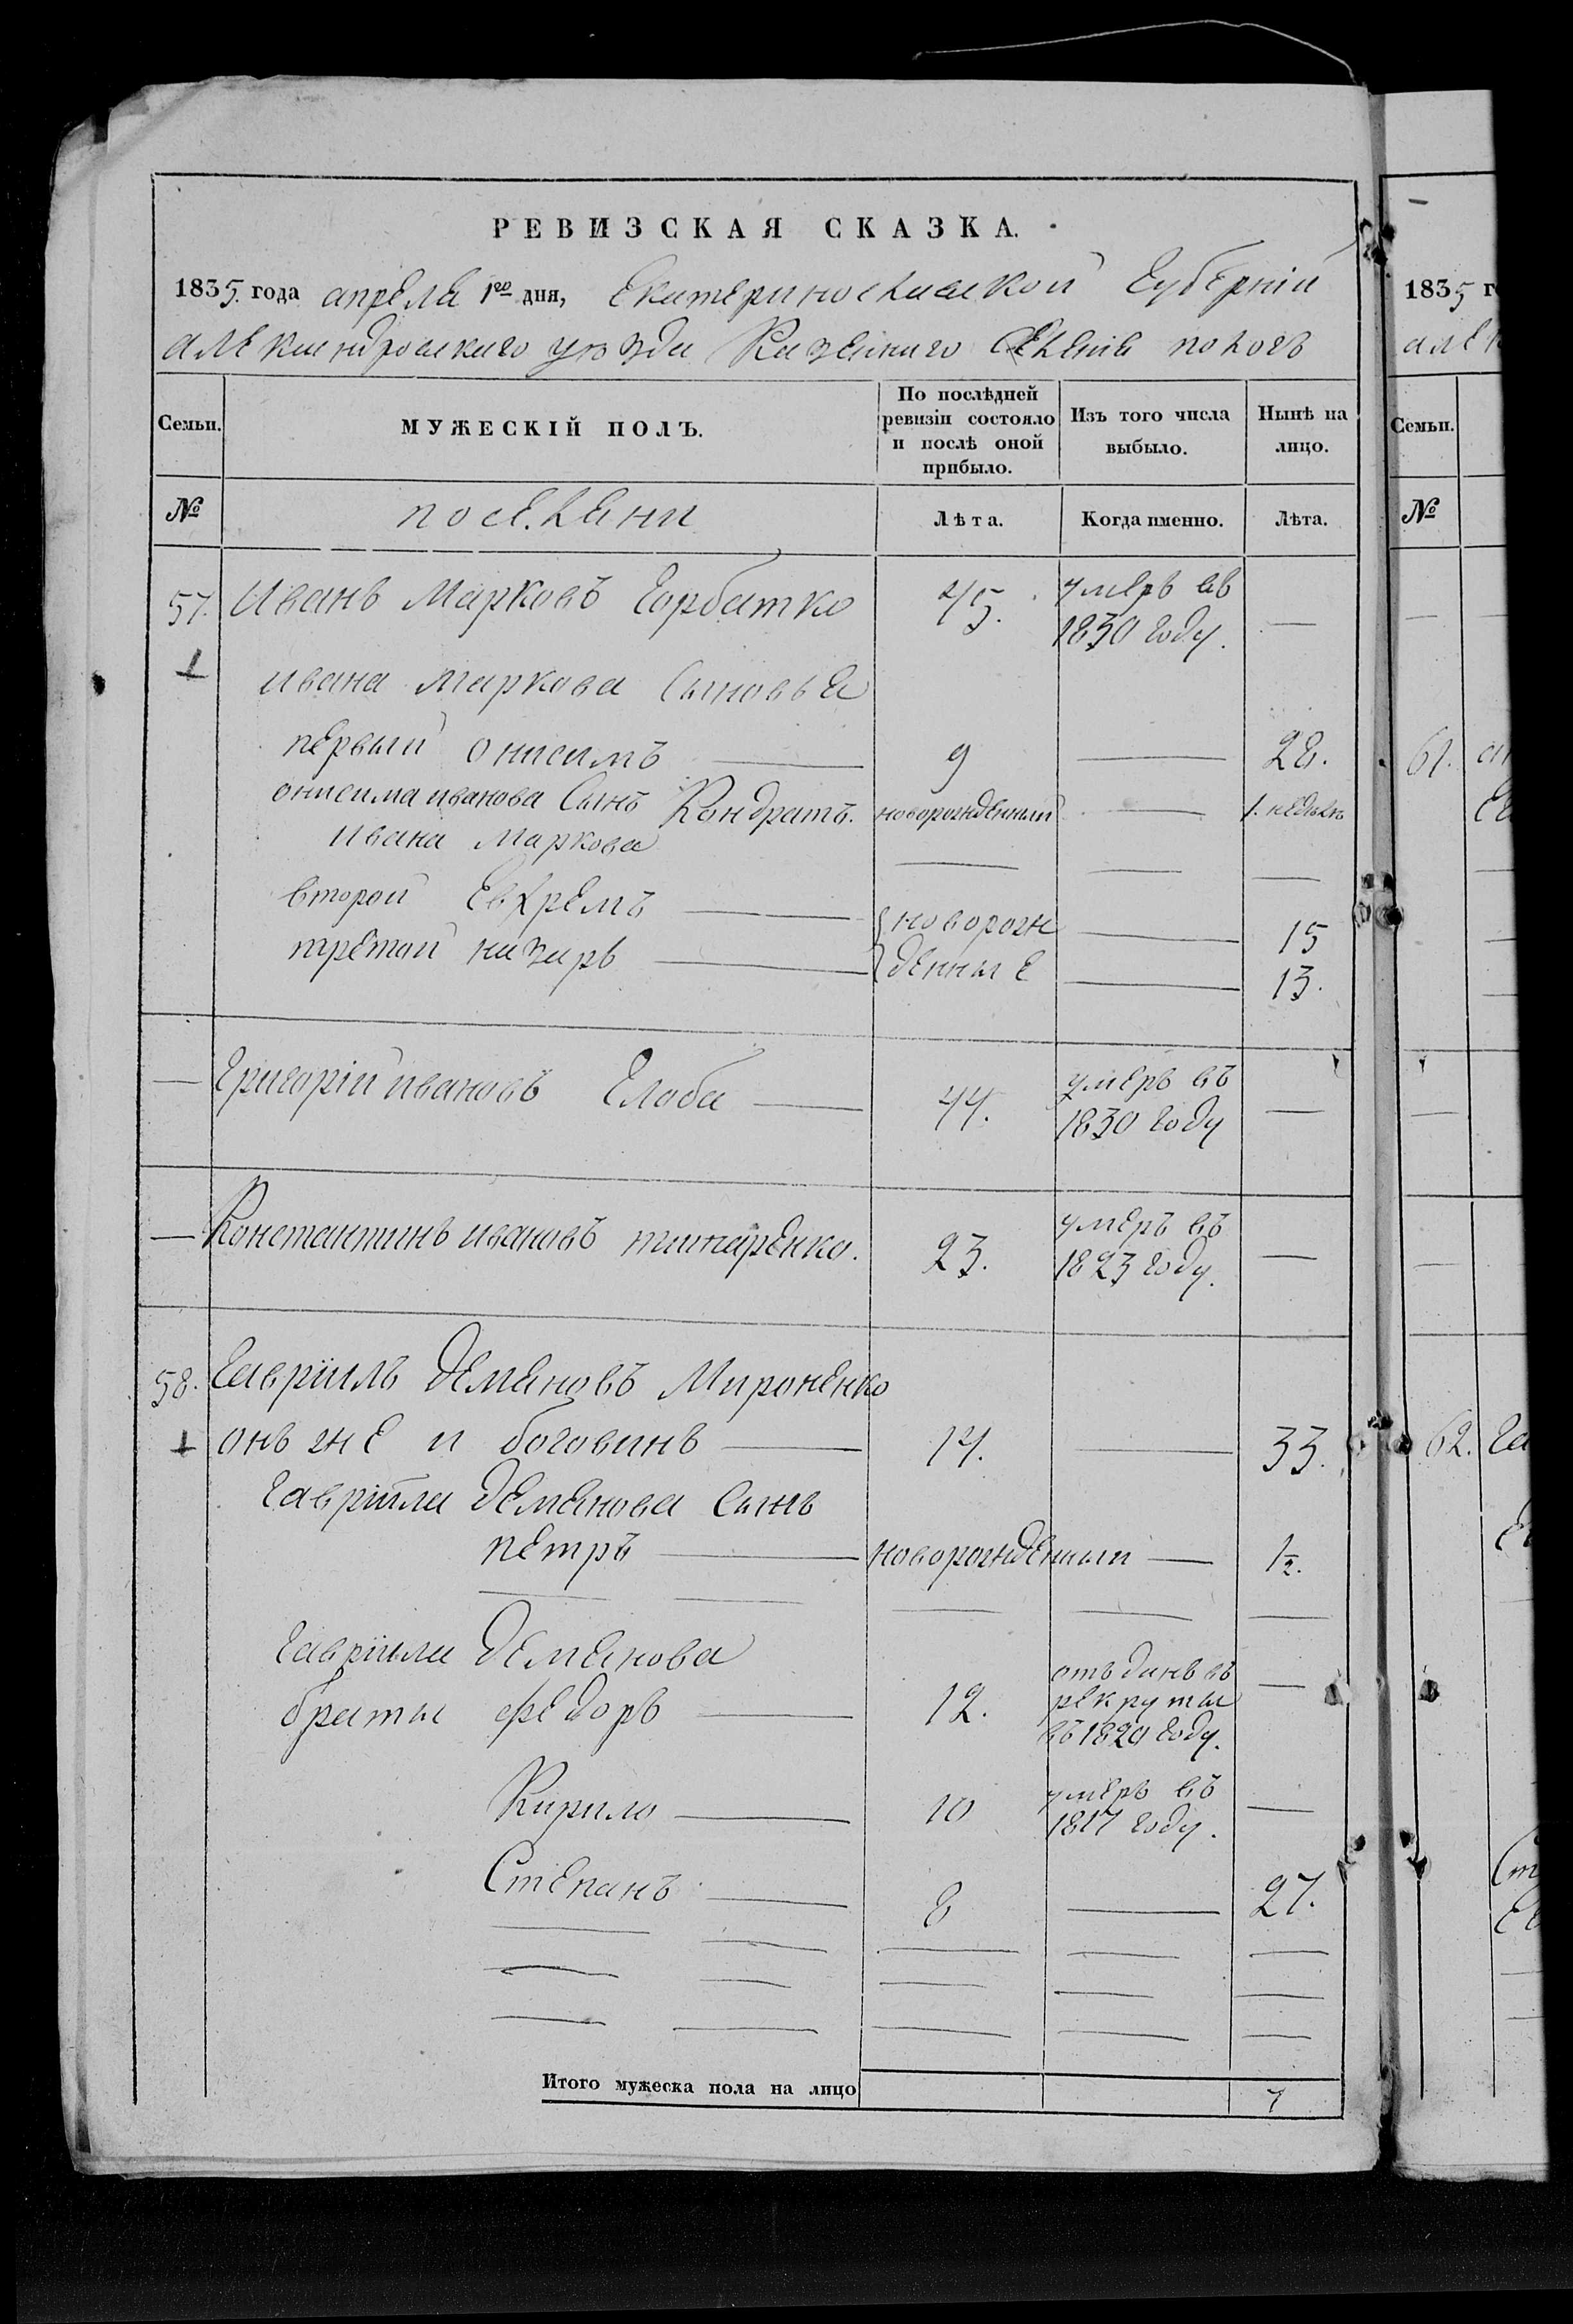 РЕВИЗСКАЯ СКАЗКА.
1835. года апреля 1го дня, Екатеринославской Губерніи
александровскаго уѣзда Казеннаго Селенія пологъ
Семьи.
МУЖЕСКІЙ ПОЛЪ.
По послѣдней
ревизіи состояло
и послѣ оной
прибыло.
Изъ того числа
выбыло.
Нынѣ на
лицо.
№
поселяни
Лѣта.
Когда именно.
Лѣта.
57. Иванъ Марковъ Горбатко 45. умеръ въ
1830 году. —
ивана маркова Сыновья
первый онисимъ — 9 — 28.
онисима иванова Сынъ Кондратъ. новорожденный — 1. неделя
ивана маркова
второй Евхремъ — новорож — 15
третой назаръ — денные — 13.
— Григорій ивановъ Глоба — 44. умеръ въ
1830 году —
— Константинъ ивановъ 23. умеръ въ
1823 году. —
58. Гавріилъ Демяновъ Мироненко
онъ же и боговинъ — 14. — 33.
Гавріила Демянова Сынъ
петръ — новорожденный — 1/2.
Гавріила Демянова
браты федоръ — 12. отъданъ въ
рекруты
въ 1829 году. —
Кирило — 10 умеръ въ
1817 году. —
Степанъ — 8 — 27.
Итого мужеска пола на лицо 7
1835 г
алек
Семьи.
№
61.
62. Га
Ст